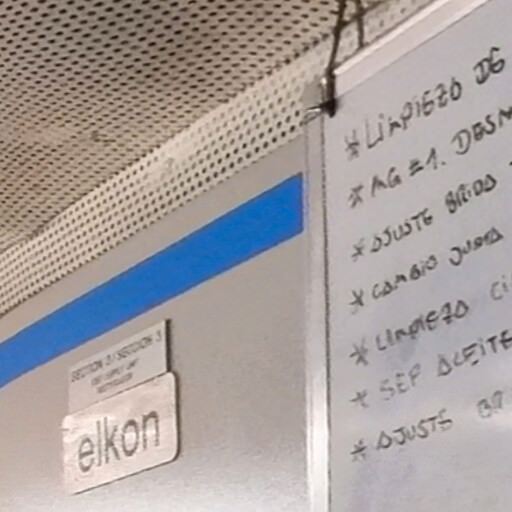 SECTION 3 / SECCION 3
elkon
* LIMPIEZO DE
* MG #1. DESM
* DJUSTE BRIDO
* COMBIO JUNTO
* LIMPIEZO CI
* SEP DCEITE
* DJUSTE BR